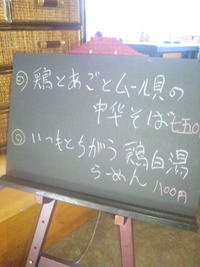 鶏とあごとムール貝の
中華そば 七五〇
いつもとちがう 鶏白湯
らーめん 八〇〇円